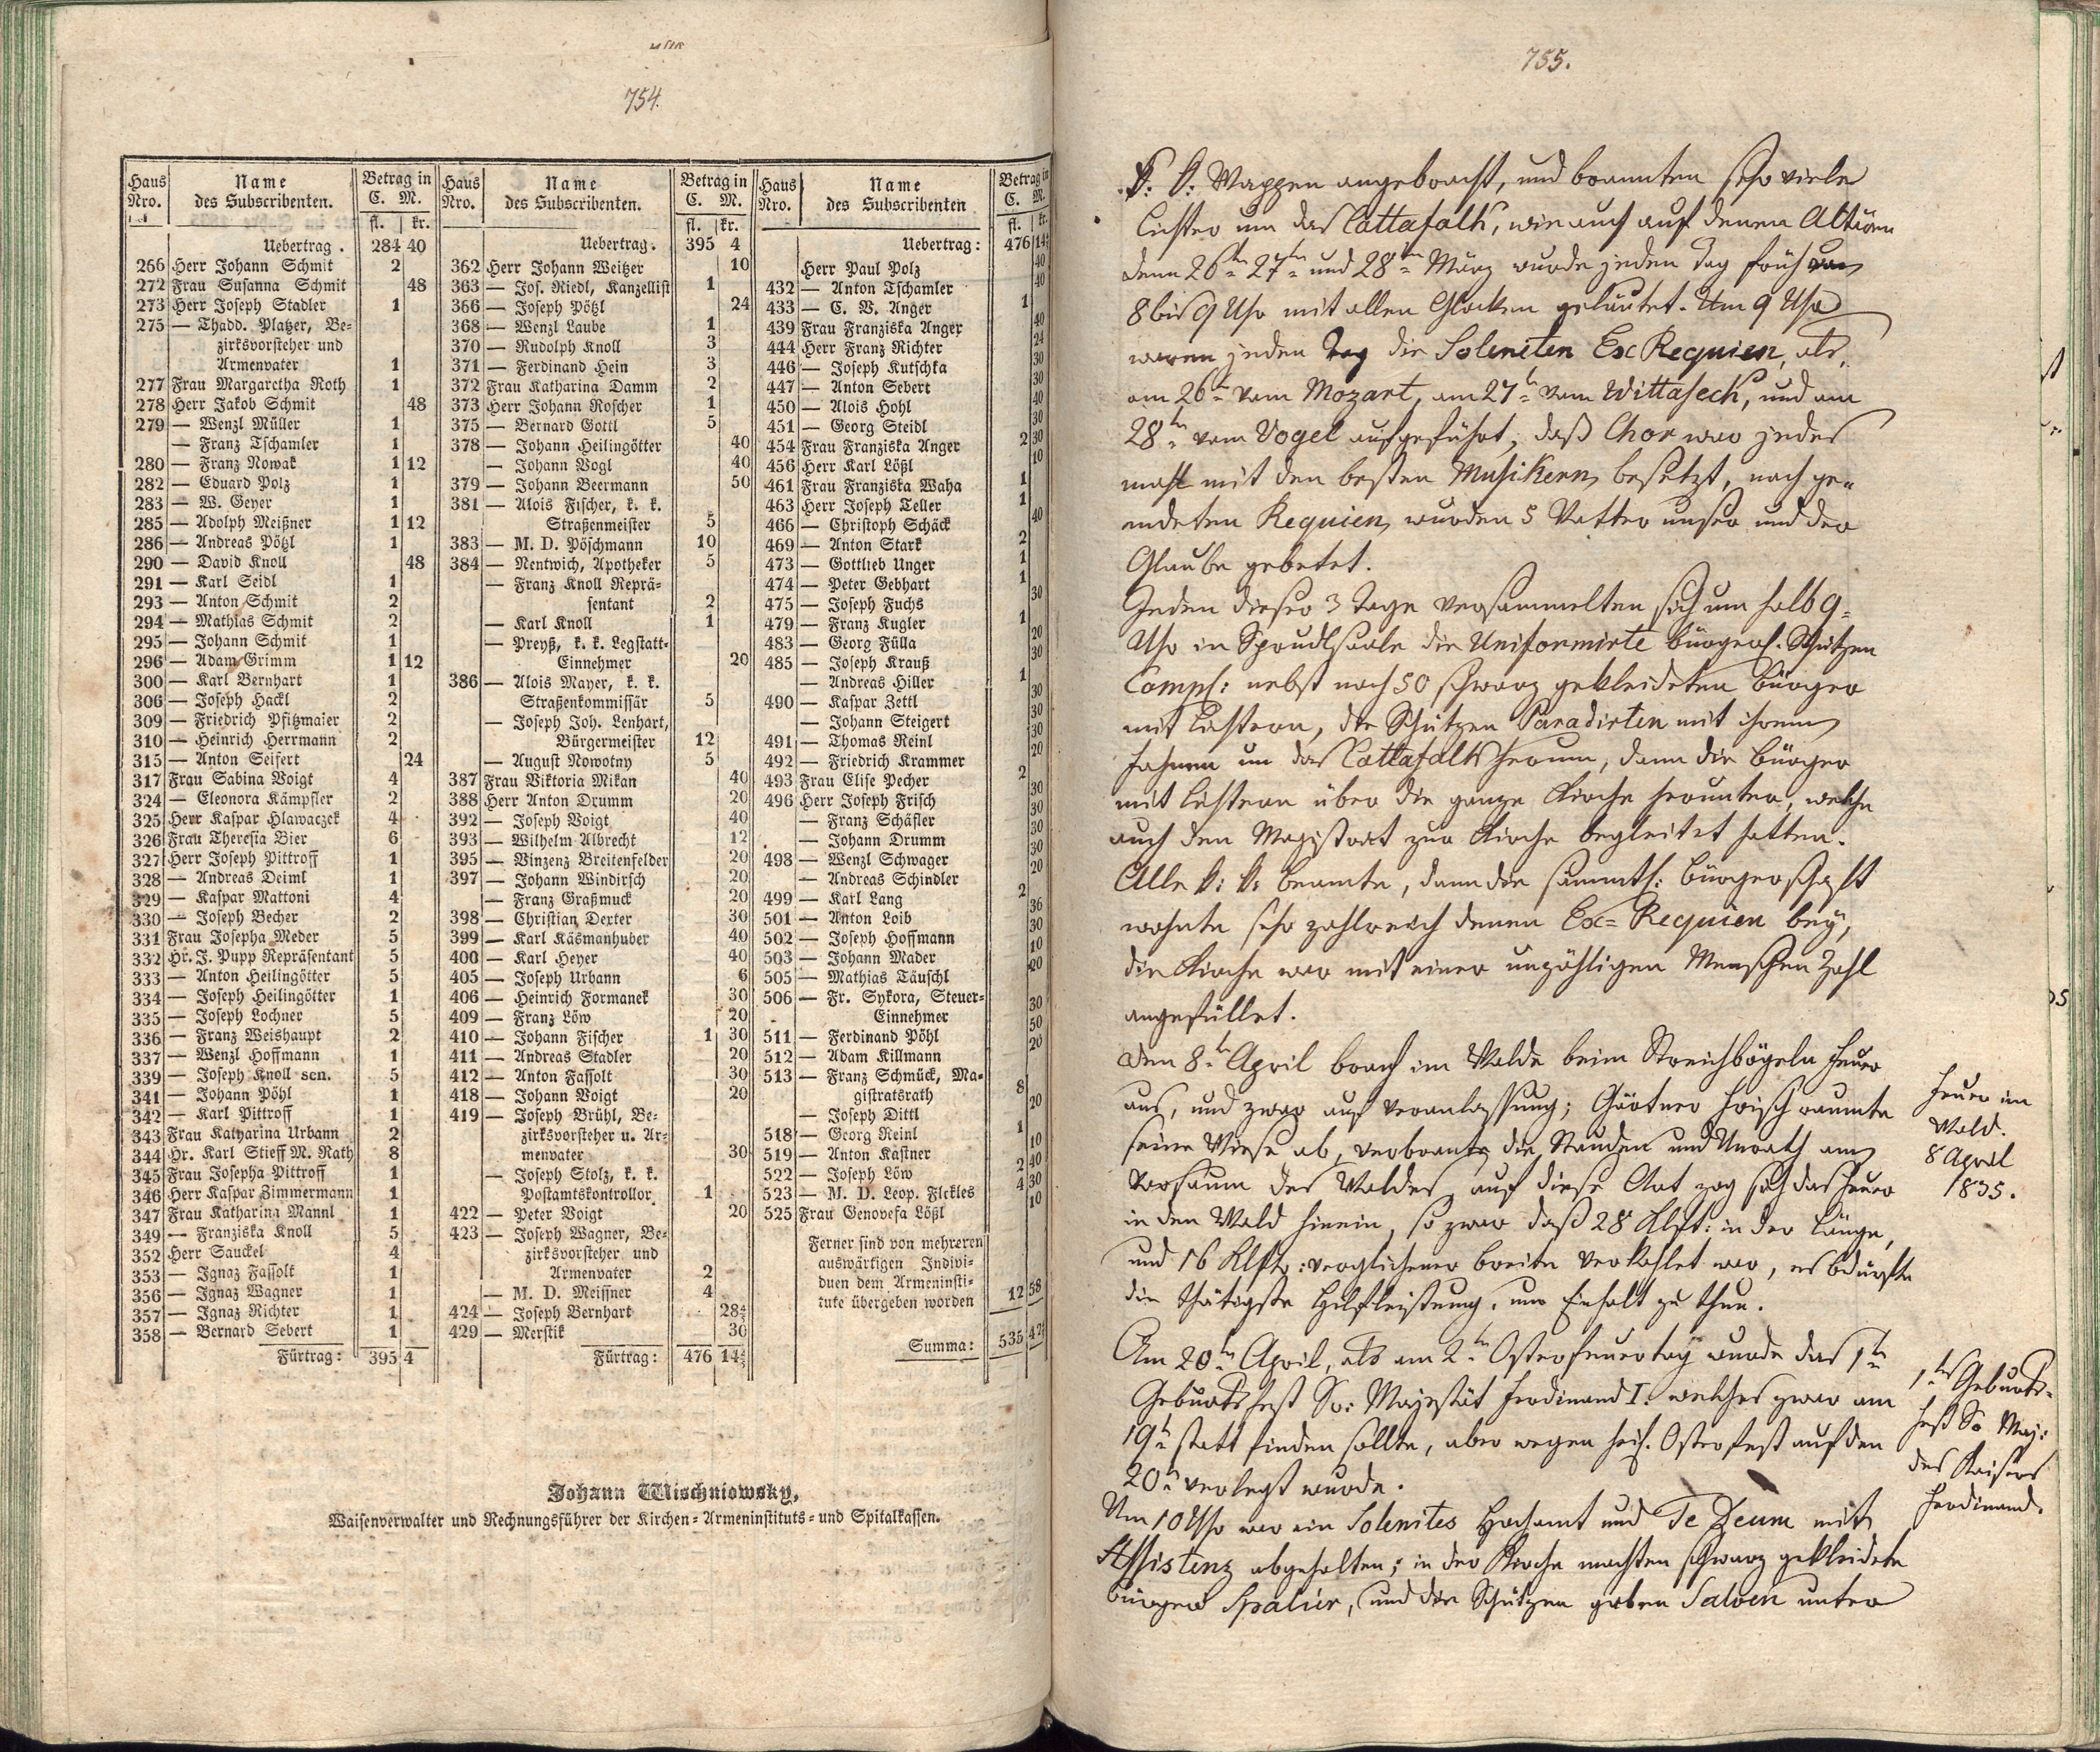 754.
Haus Nro. Name des Subscribenten. Betrag in C. M. fl. kr.
Uebertrag . 284 40
266 Herr Johann Schmit 2
272 Frau Susanna Schmit 48
273 Herr Joseph Stadler 1
275 — Thadd. Platzer, Be-
zirksvorsteher und
Armenvater 1
277 Frau Margaretha Roth 1
278 Herr Jakob Schmit 48
279 — Wenzl Müller 1
— Franz Tschamler 1
280 — Franz Nowak 1 12
282 — Eduard Polz 1
283 — W. Geyer 1
285 — Adolph Meißner 1 12
286 — Andreas Pötzl 1
290 — David Knoll 48
291 — Karl Seidl 1
293 — Anton Schmit 2
294 — Mathias Schmit 2
295 — Johann Schmit 1
296 — Adam Grimm 1 12
300 — Karl Bernhart 1
306 — Joseph Hackl 2
309 — Friedrich Pfitzmaier 2
310 — Heinrich Herrmann 2
315 — Anton Seifert 24
317 Frau Sabina Voigt 4
324 — Eleonora Kämpfler 2
325 Herr Kaspar Hlawaczek 4
326 Frau Theresia Bier 6
327 Herr Joseph Pittroff 1
328 — Andreas Deiml 1
329 — Kaspar Mattoni 4
330 — Joseph Becher 2
331 Frau Josepha Meder 5
332 Hr. J. Pupp Repräsentant 5
333 — Anton Heilingötter 5
334 — Joseph Heilingötter 1
335 — Joseph Lochner 5
336 — Franz Weishaupt 2
337 — Wenzl Hoffmann 1
339 — Joseph Knoll sen. 5
341 — Johann Pöhl 1
342 — Karl Pittroff 1
343 Frau Katharina Urbann 2
344 Hr. Karl Stieff M. Rath 8
345 Frau Josepha Pittroff 1
346 Herr Kaspar Zimmermann 1
347 Frau Katharina Mannl 1
349 — Franziska Knoll 5
352 Herr Sauckel 4
353 — Ignaz Fassolt 1
356 — Ignaz Wagner 1
357 — Ignaz Richter 1
358 — Bernard Sebert 1
Fürtrag: 395 4
Haus Nro. Name des Subscribenten. Betrag in C. M. fl. kr.
Uebertrag . 395 4
362 Herr Johann Weitzer 10
363 — Jos. Riedl, Kanzellist 1
366 — Joseph Pötzl 24
368 — Wenzl Laube 1
370 — Rudolph Knoll 3
371 — Ferdinand Hein 3
372 Frau Katharina Damm 2
373 Herr Johann Roscher 1
375 — Bernard Gottl 5
378 — Johann Heilingötter 40
— Johann Vogl 40
379 — Johann Beermann 50
381 — Alois Fischer, k. k.
Straßenmeister 5
383 — M. D. Pöschmann 10
384 — Nentwich, Apotheker 5
— Franz Knoll Reprä-
sentant 2
— Karl Knoll 1
— Preyß, k. k. Legstatt-
Einnehmer 20
386 — Alois Mayer, k. k.
Straßenkommissär 5
— Joseph Joh. Lenhart,
Bürgermeister 12
— August Nowotny 5
387 Frau Viktoria Mikan 40
388 Herr Anton Drumm 20
392 — Joseph Voigt 40
393 — Wilhelm Albrecht 12
395 — Vinzenz Breitenfelder 20
397 — Johann Windirsch 20
— Franz Graßmuck 20
398 — Christian Dexter 30
399 — Karl Käsmanhuber 40
400 — Karl Heyer 40
405 — Joseph Urbann 6
406 — Heinrich Formanek 30
409 — Franz Löw 20
410 — Johann Fischer 1 30
411 — Andreas Stadler 20
412 — Anton Fassolt 30
418 — Johann Voigt 20
419 — Joseph Brühl, Be-
zirksvorsteher u. Ar-
menvater 30
— Joseph Stolz, k. k.
Postamtskontrollor 1
422 — Peter Voigt 20
423 — Joseph Wagner, Be-
zirksvorsteher und
Armenvater 2
— M. D. Meissner 4
424 — Joseph Bernhart 28
429 — Merstik 30
Fürtrag: 476 14
Haus Nro. Name des Subscribenten Betrag in C. M. fl. kr.
Uebertrag: 476 14
Herr Paul Polz 40
432 — Anton Tschamler 40
433 — C. V. Anger 1
439 Frau Franziska Anger 40
444 Herr Franz Richter 24
446 — Joseph Kutschka 30
447 — Anton Sebert 30
450 — Alois Hohl 40
451 — Georg Steidl 30
454 Frau Franziska Anger 2 30
456 Herr Karl Lößl 10
461 Frau Franziska Waha 1
463 Herr Joseph Teller 1
466 — Christoph Schäck 40
469 — Anton Stark 2
473 — Gottlieb Unger 1
474 — Peter Gebhart 1
475 — Joseph Fuchs 30
479 — Franz Kugler 1
483 — Georg Fülla 20
485 — Joseph Krauß 30
— Andreas Hiller 1
490 — Kaspar Zettl 30
— Johann Steigert 30
491 — Thomas Reinl 30
492 — Friedrich Krammer 20
493 Frau Elise Pecher 2
496 Herr Joseph Frisch 30
— Franz Schäfler 30
— Johann Drumm 30
498 — Wenzl Schwager 30
— Andreas Schindler 20
499 — Karl Lang 2
501 — Anton Loib 36
502 — Joseph Hoffmann 30
503 — Johann Mader 10
505 — Mathias Täuschl 20
506 — Fr. Sykora, Steuer-
Einnehmer 30
511 — Ferdinand Pöhl 50
512 — Adam Killmann 20
513 — Franz Schmück, Ma-
gistratsrath 8
— Joseph Dittl 20
518 — Georg Reinl 1
519 — Anton Kastner 10
522 — Joseph Löw 2 40
523 — M. D. Leop. Fleckles 4 30
525 Frau Genovefa Lößl 10
Ferner sind von mehreren
auswärtigen Indivi-
duen dem Armeninsti-
tute übergeben worden 12 58
Summa: 535 42
Johann Wischniowsky,
Waisenverwalter und Rechnungsführer der Kirchen-Armeninstituts- und Spitalkassen.
755.
K: K: Wappen angebracht, und brannten sehr viele
Lichter um das Cattafalk, wie auch auf denen Altären
denn 26tn 27tn und 28tn März wurde jeden Tag früh von
8 bis 9 Uhr mit allen Glocken geläutet. Um 9 Uhr
waren jeden Tag die Soleniten Ex Requien, als,
am 26tn vom Mozart, am 27tn vom Wittasech, und am
28tn vom Vogel aufgeführt, daß Chor war jedes
mahl mit den besten Musikern besetzt, nach ge-
endeten Requien, wurden 5 Vatter unser und der
Glaube gebetet.
Jeden dieser 3 Tage versammelten sich um halb 9-
Uhr in Sprudlsaale die Uniformirte bürgerl. Schützen
Comp: nebst noch 50 schwarz gekleideten Bürger
mit Lichtern, die Schützen Paradirten mit ihrem
Fahnen um das Cattafalk herum, dann die Bürger
mit Lichtern über die ganze Kirche herunter, welche
auch den Magistrat zur Kirche begleitet hatten.
Alle k: k: Beamte, dann die sämmtl: Bürgerschaft
wohnte sehr zahlreich denen Ex-Requien bey,
die Kirche war mit einer unzähligen Menschen Zahl
angefüllet.
Den 8tn April brach im Walde beim Streichbögeln Feuer
aus, und zwar auf Veranlassung; Gärtner Frisch raumte
seine Wiese ab, verbrante die Stauden und Unrath am
Vorsaum des Waldes, auf diese Art zog sich das Feuer
in den Wald hinein, so zwar daß 28 Klft: in der Länge,
und 16 Klftr: verglichener breite verkohlet war, es bedürfte
die thätigste Hilfleistung, um Einhalt zu thun.
Feuer im
Wald.
8 April
1835.
Am 20tn April, als am 2tn Osterfeuertag wurde das 1te
Geburtsfest Sr: Majestät Ferdinand I. welches zwar am
19tn statt finden sollte, aber wegen heil. Osterfest auf den
20tn verlegt wurde.
Um 10 Uhr war ein Solenites Hochamt und Te Deum mit
Assistenz abgehalten; in der Kirche machten schwarz gekleidete
Bürger Spalier, und die Schützen gaben Salven unter
1tes Geburts-
fest Sr Maj:
des Kaisers
Ferdinand.